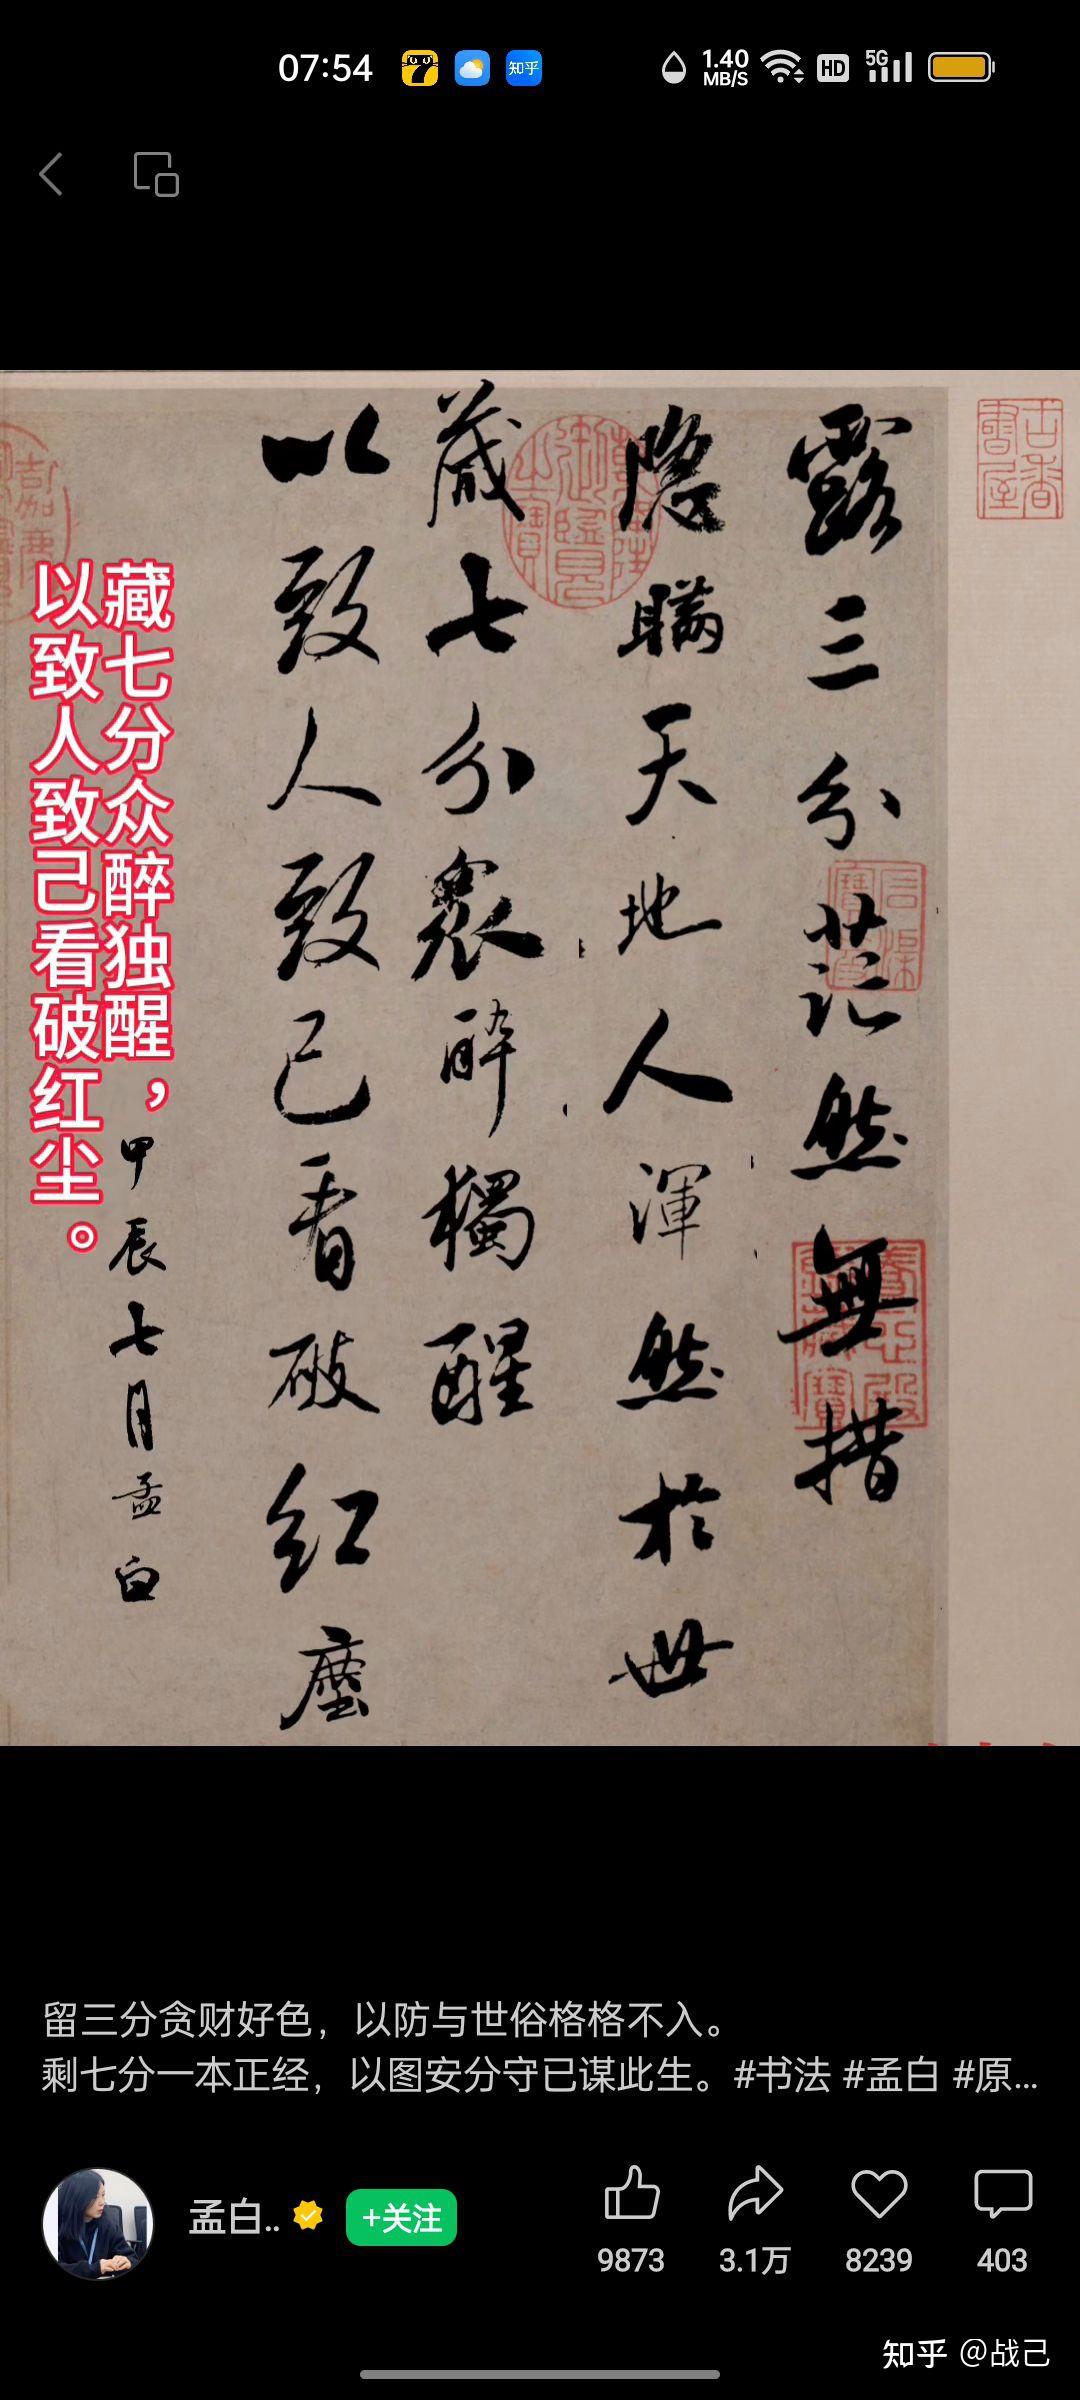 07:54
知乎
1.40
MB/S
HD
5G
露三分茫然無措
隱瞞天地人渾然於世
蔵七分衆酔獨醒
以致人致己看破紅塵
甲辰七月孟白
藏七分众醉独醒，
以致人致己看破红尘。
古香書屋
留三分贪财好色，以防与世俗格格不入。
剩七分一本正经，以图安分守已谋此生。#书法 #孟白 #原...
孟白..
+关注
9873
3.1万
8239
403
知乎 @战己